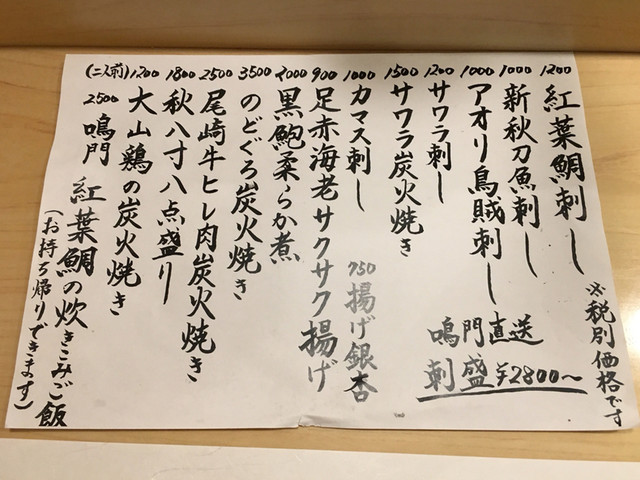 ※税別価格です
1200 紅葉鯛刺し
1000 新秋刀魚刺し
1000 アオリ烏賊刺し
鳴門直送
刺盛 ¥2800～
1200 サワラ刺し
1500 サワラ炭火焼き
1000 カマス刺し
750 揚げ銀杏
900 足赤海老サクサク揚げ
2000 黒鮑柔らか煮
3500 のどぐろ炭火焼き
2500 尾崎牛ヒレ肉炭火焼き
1800 秋八寸八点盛り
1200 大山鶏の炭火焼き
(二人前) 2500 鳴門 紅葉鯛の炊きこみご飯
(お持ち帰りできます)